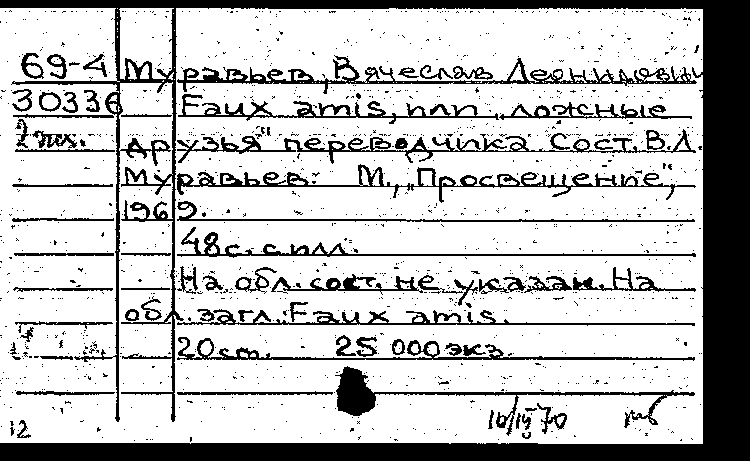 69-4 Муравьев, Вячеслав Леонидович
30336 Faux amis, или „ложные
2 экз. друзья" переводчика. Сост. В.Л.
Муравьев. М., „Просвещение",
1969.
48с. с илл.
На обл. сост. не указан. На
обл. загл.: Faux amis.
20см. 25 000экз.
12